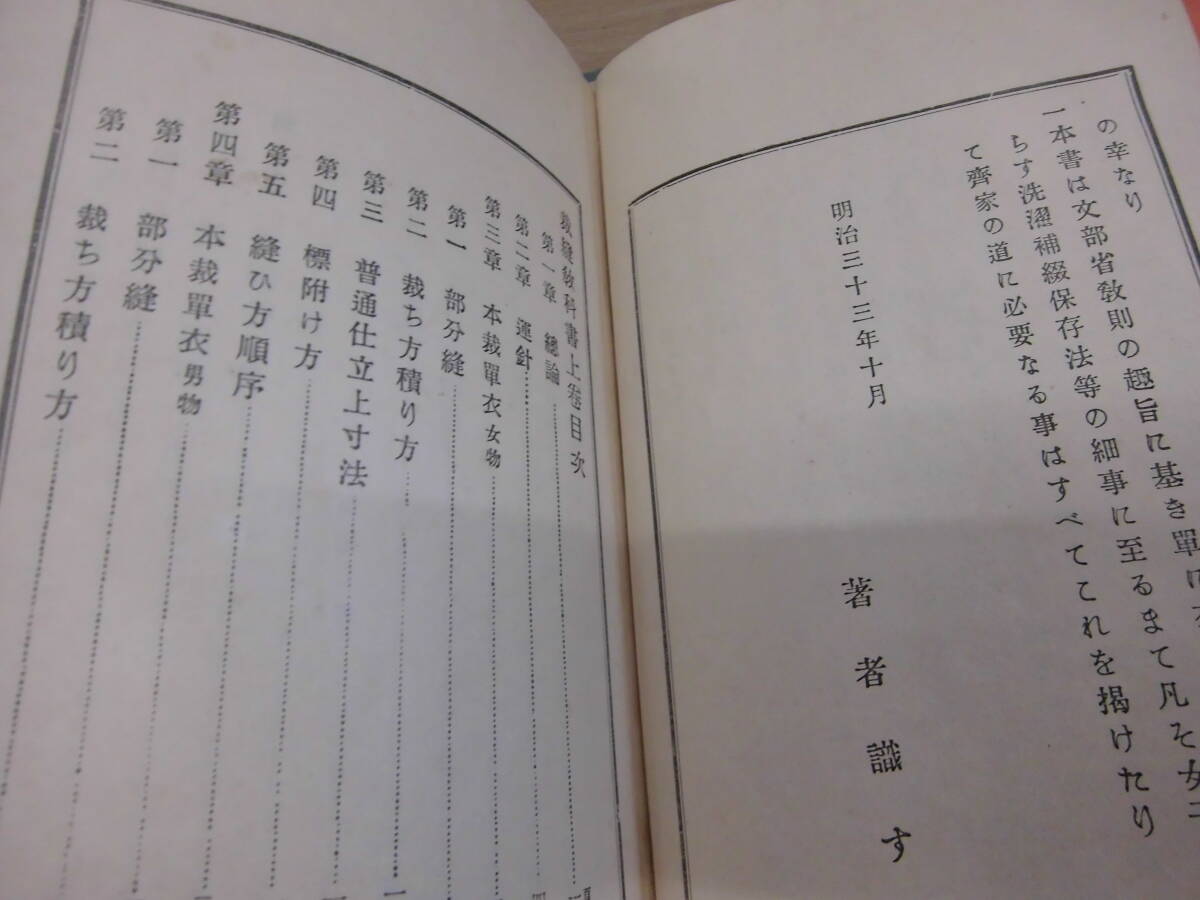 の幸なり
一本書は文部省敎則の趣旨に基き單に
らす洗濯補綴保存法等の細事に至るまて凡そ女子
て齊家の道に必要なる事はすべてこれを揭けたり
明治三十三年十月
著者識す
裁縫敎科書上卷目次
第一章 總論
第二章 運針
第三章 本裁單衣女物
第一 部分縫
第二 裁ち方積り方
第三 普通仕立上寸法
第四 標附け方
第五 縫ひ方順序
第四章 本裁單衣男物
第一 部分縫
第二 裁ち方積り方